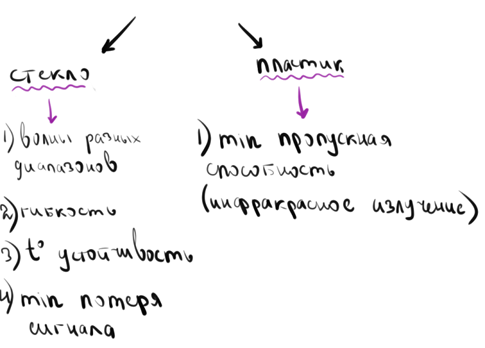 стекло
1) волны разных
диапазонов
2) гибкость
3) t° устойчивость
4) min потеря
сигнала
пластик
1) min пропускная
способность
(инфракрасное излучение)